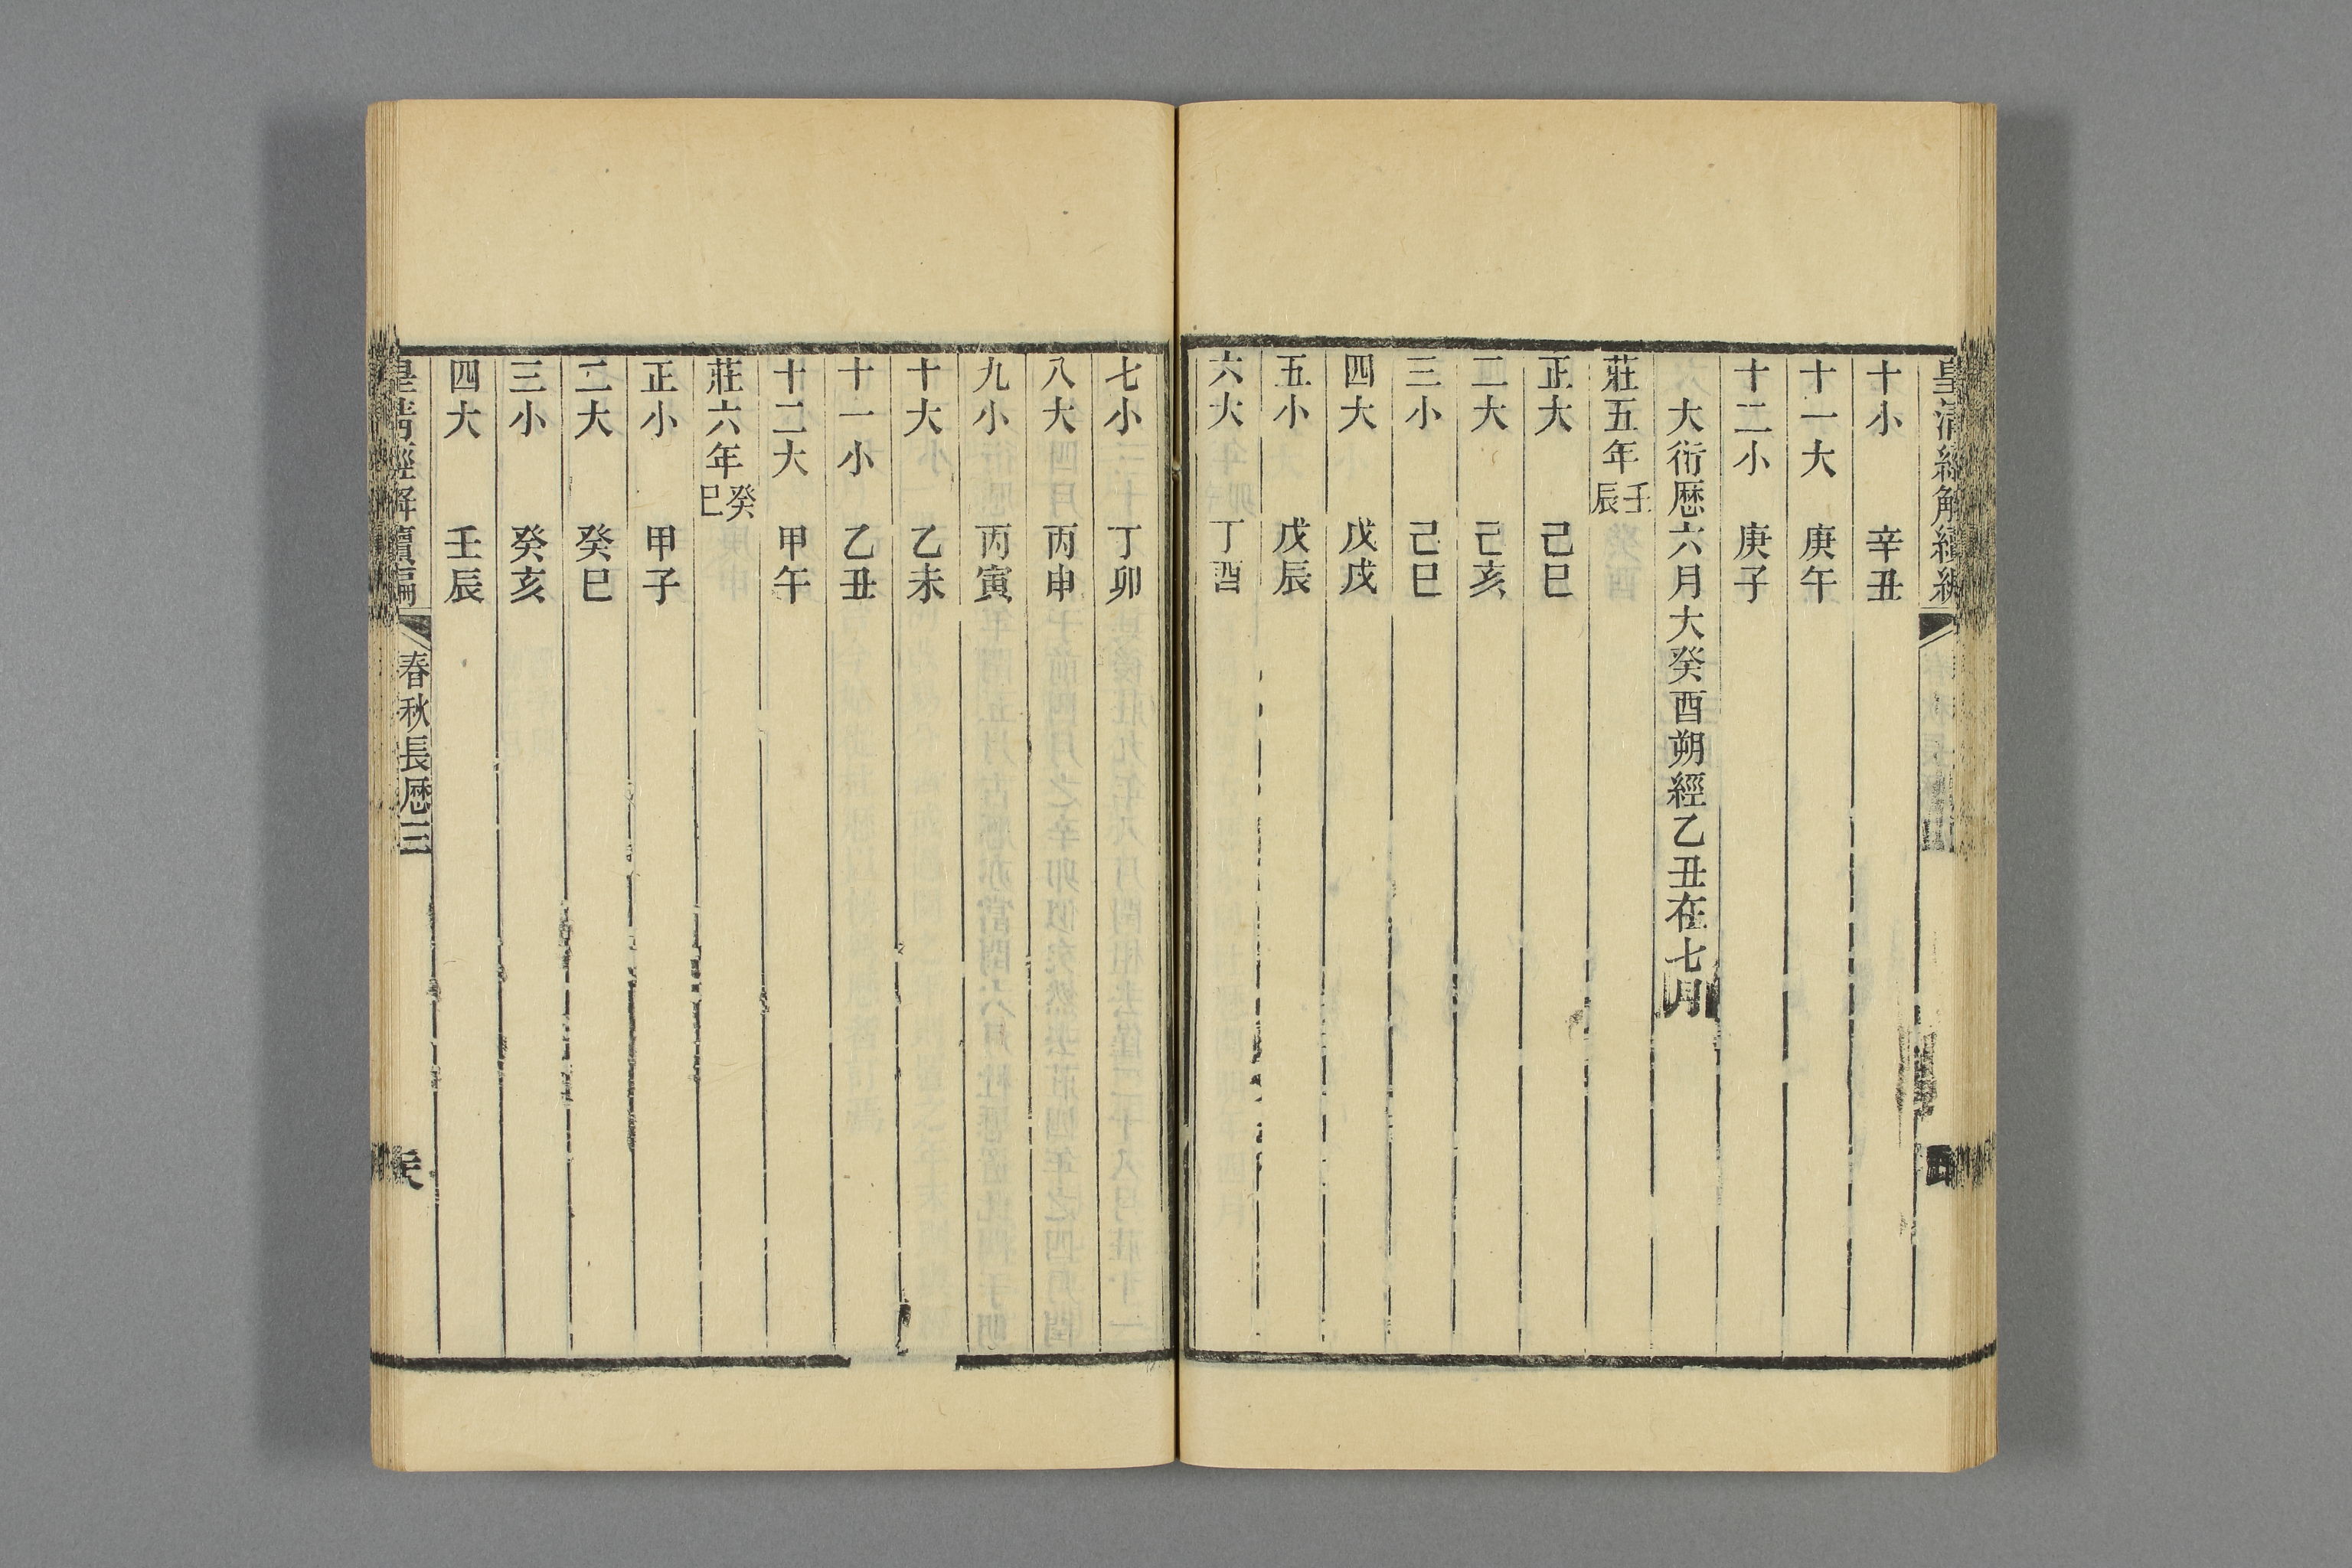 皇清經解續編
十小 辛丑
十一大 庚午
十二小 庚子
大衍厯六月大癸酉朔經乙丑在七月
莊五年壬辰
正大 己巳
二大 己亥
三小 己巳
四大 戊戌
五小 戊辰
六大 丁酉
七小 丁卯
八大 丙申
九小 丙寅
十大 乙未
十一小 乙丑
十二大 甲午
莊六年癸巳
正小 甲子
二大 癸巳
三小 癸亥
四大 壬辰
皇清經解續編 春秋長厯三